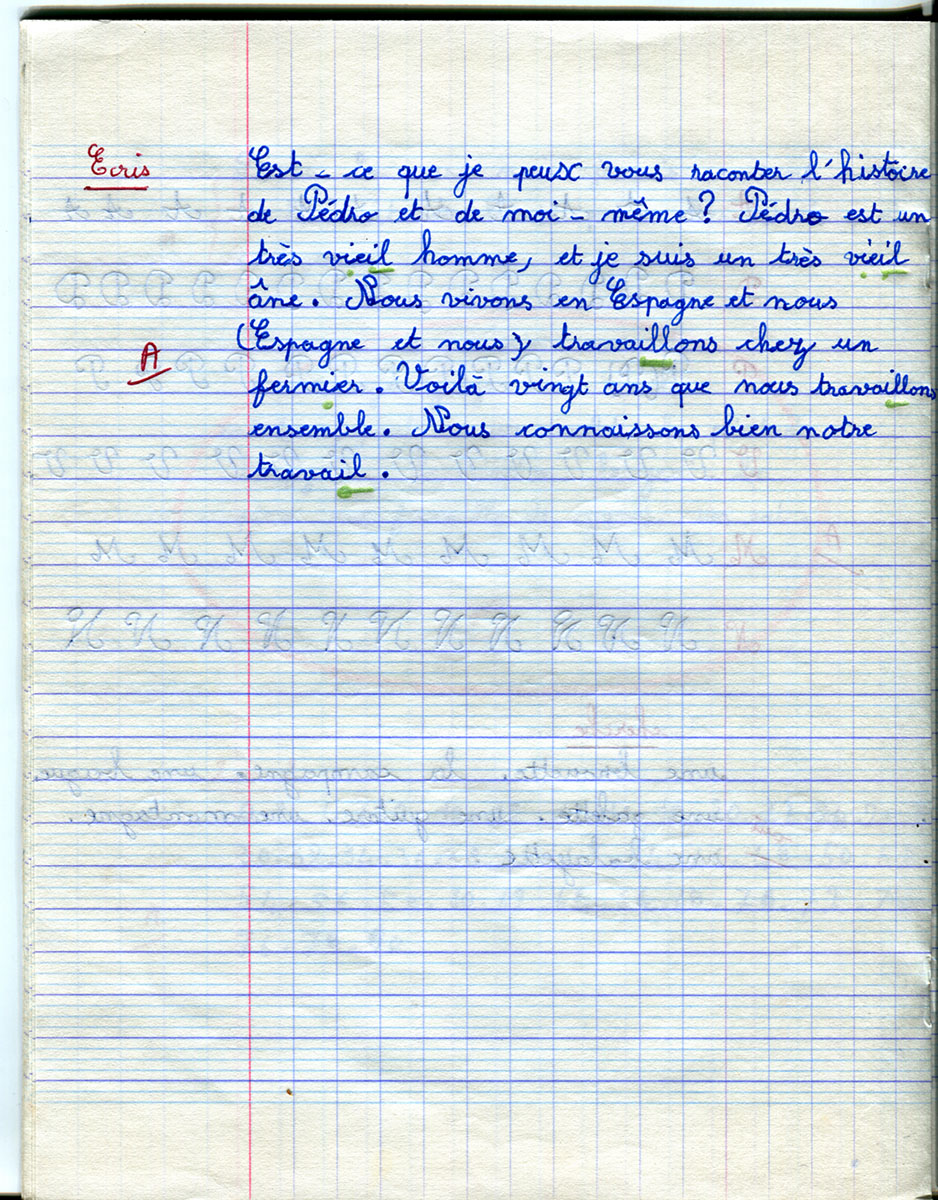 Ecris
Est-ce que je peux vous raconter l'histoire
de Pédro et de moi-même? Pédro est un
très vieil homme, et je suis un très vieil
âne. Nous vivons en Espagne et nous
(Espagne et nous) travaillons chez un
A
fermier. Voilà vingt ans que nous travaillons
ensemble. Nous connaissons bien notre
travail.